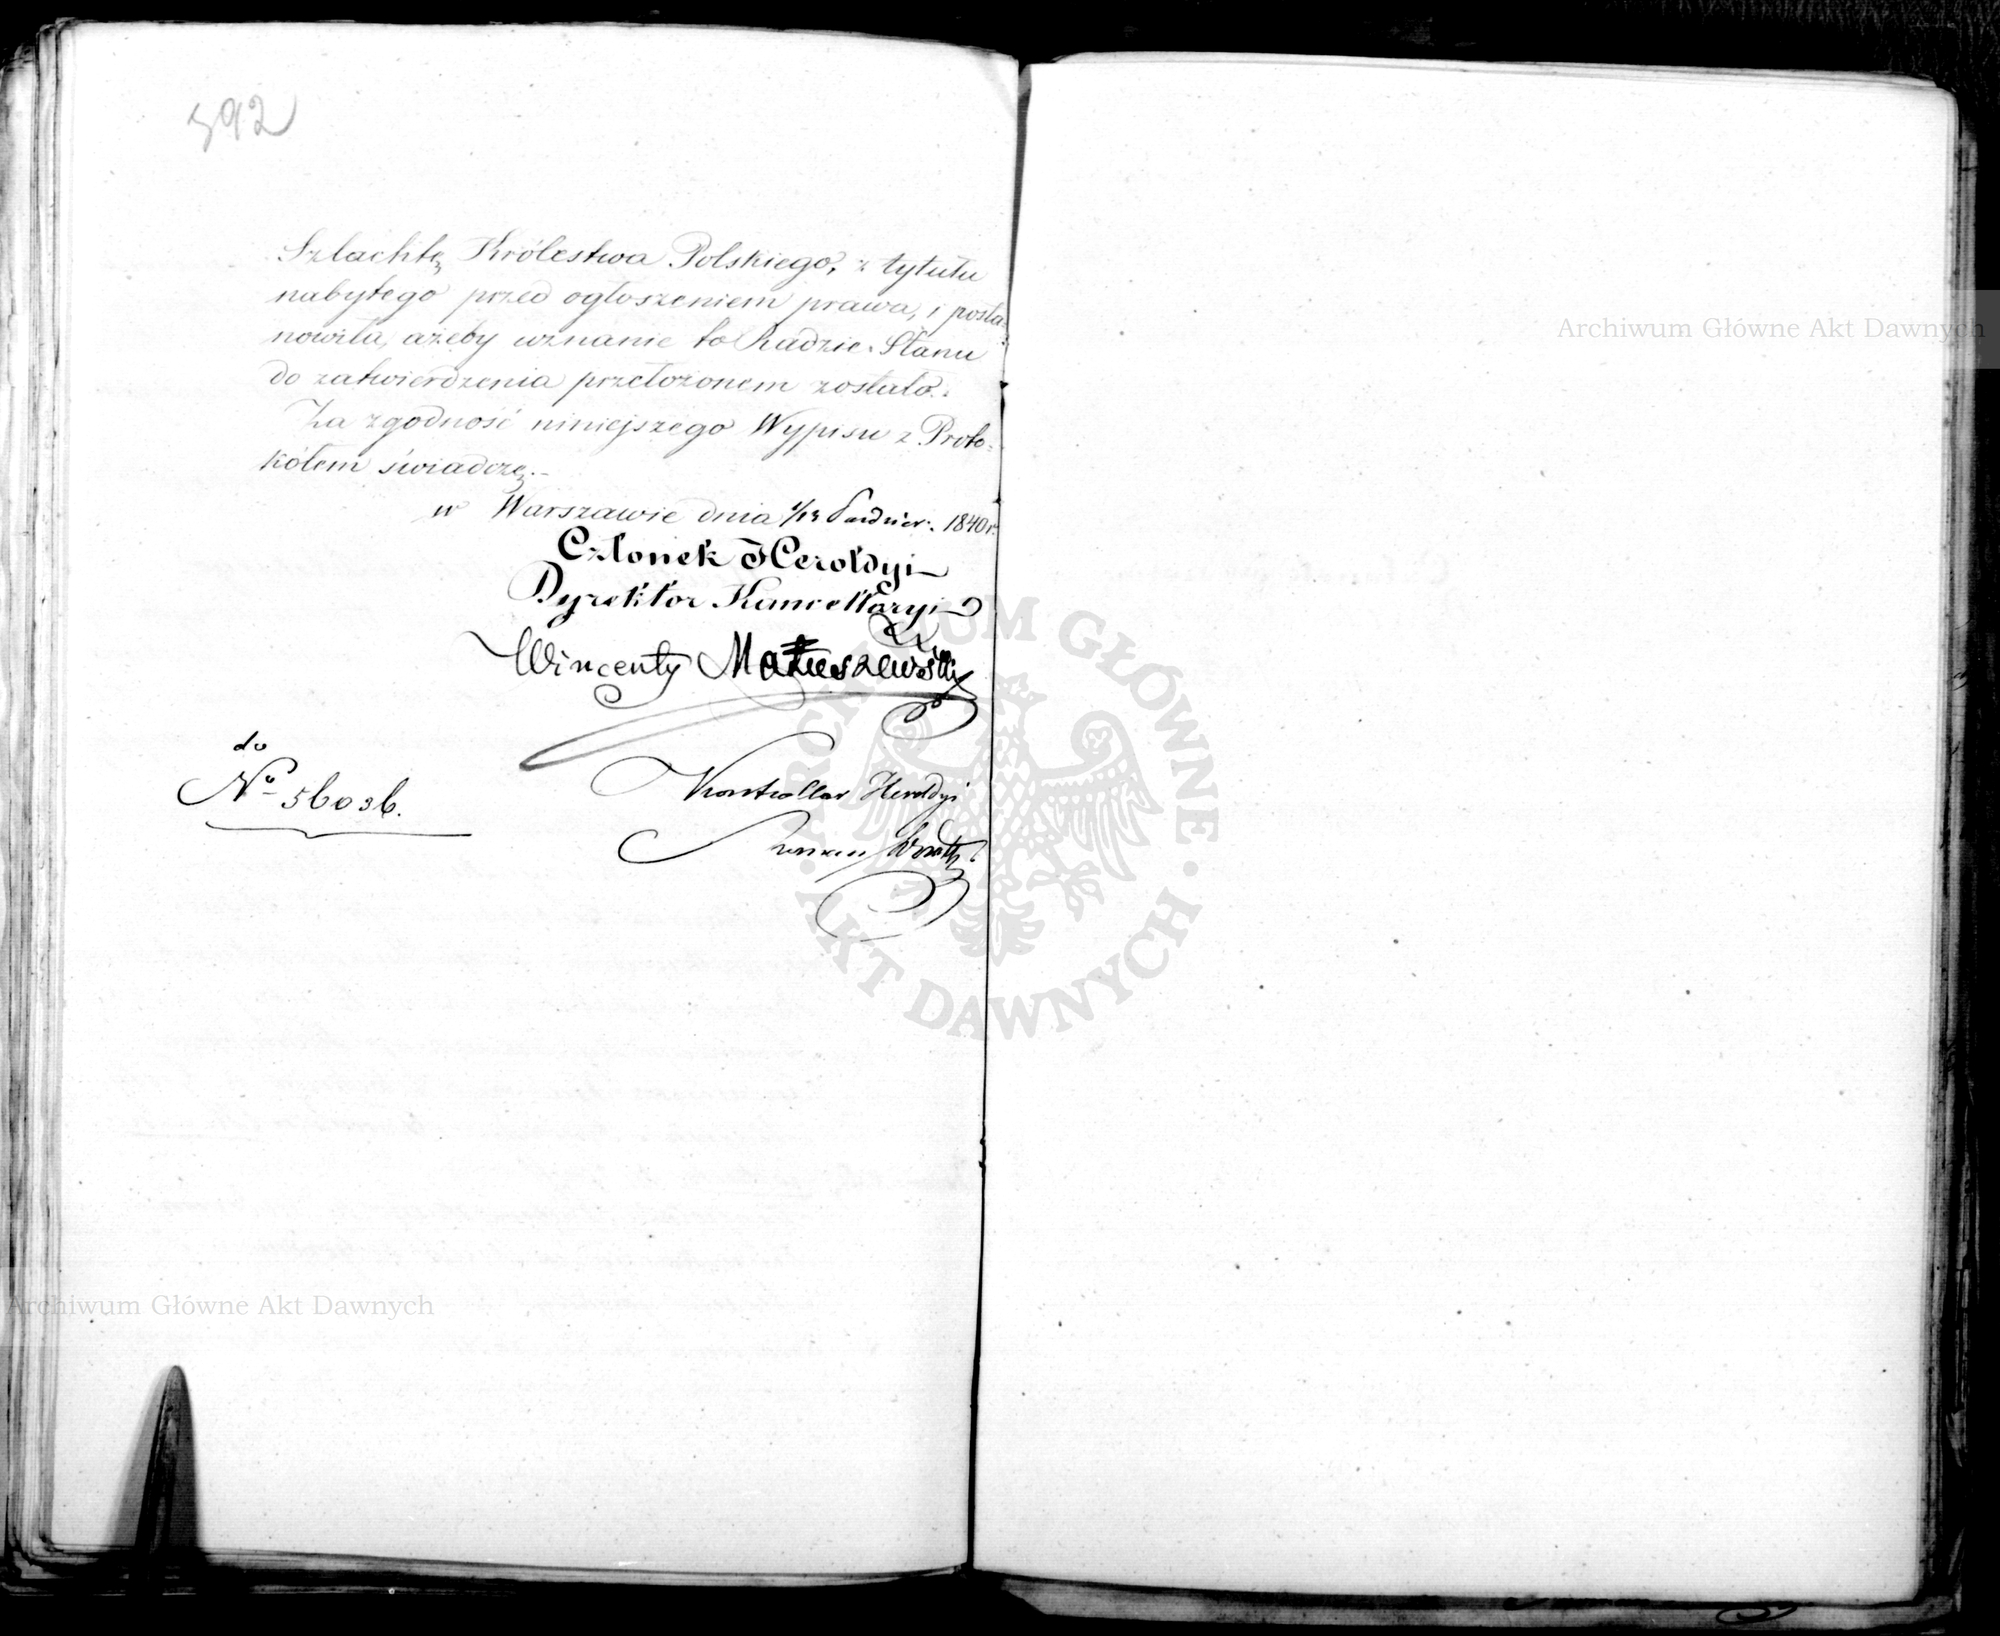 592
Szlachtę Królestwa Polskiego, z tytułu
nabytego przed ogłoszeniem prawa, i posta-
nowiła, ażeby uznanie to Radzie Stanu
do zatwierdzenia przełożonem zostało.
Za zgodność niniejszego Wypisu z Proto-
kółem świadczę.
w Warszawie dnia 1/13 Paźdźier. 1840 r.
Członek Heroldyi
Dyrektor Kancellaryi
Wincenty Matuszewski
do
No 56036.
Kontroller Heroldyi
ARCHIWUM GŁÓWNE AKT DAWNYCH
Archiwum Główne Akt Dawnych
Archiwum Główne Akt Dawnych